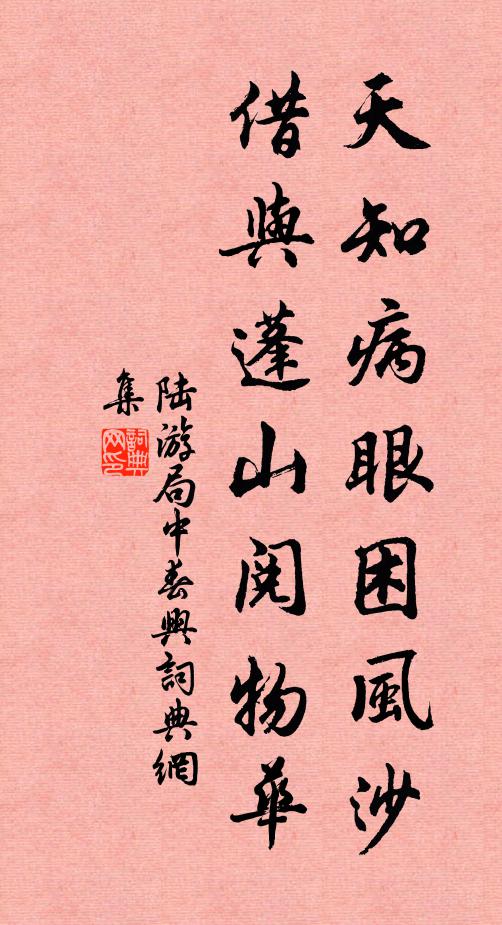 天知病眼困風沙
借與蓬山閱物華
陆游局中春興詞典網
集
詞典
网印